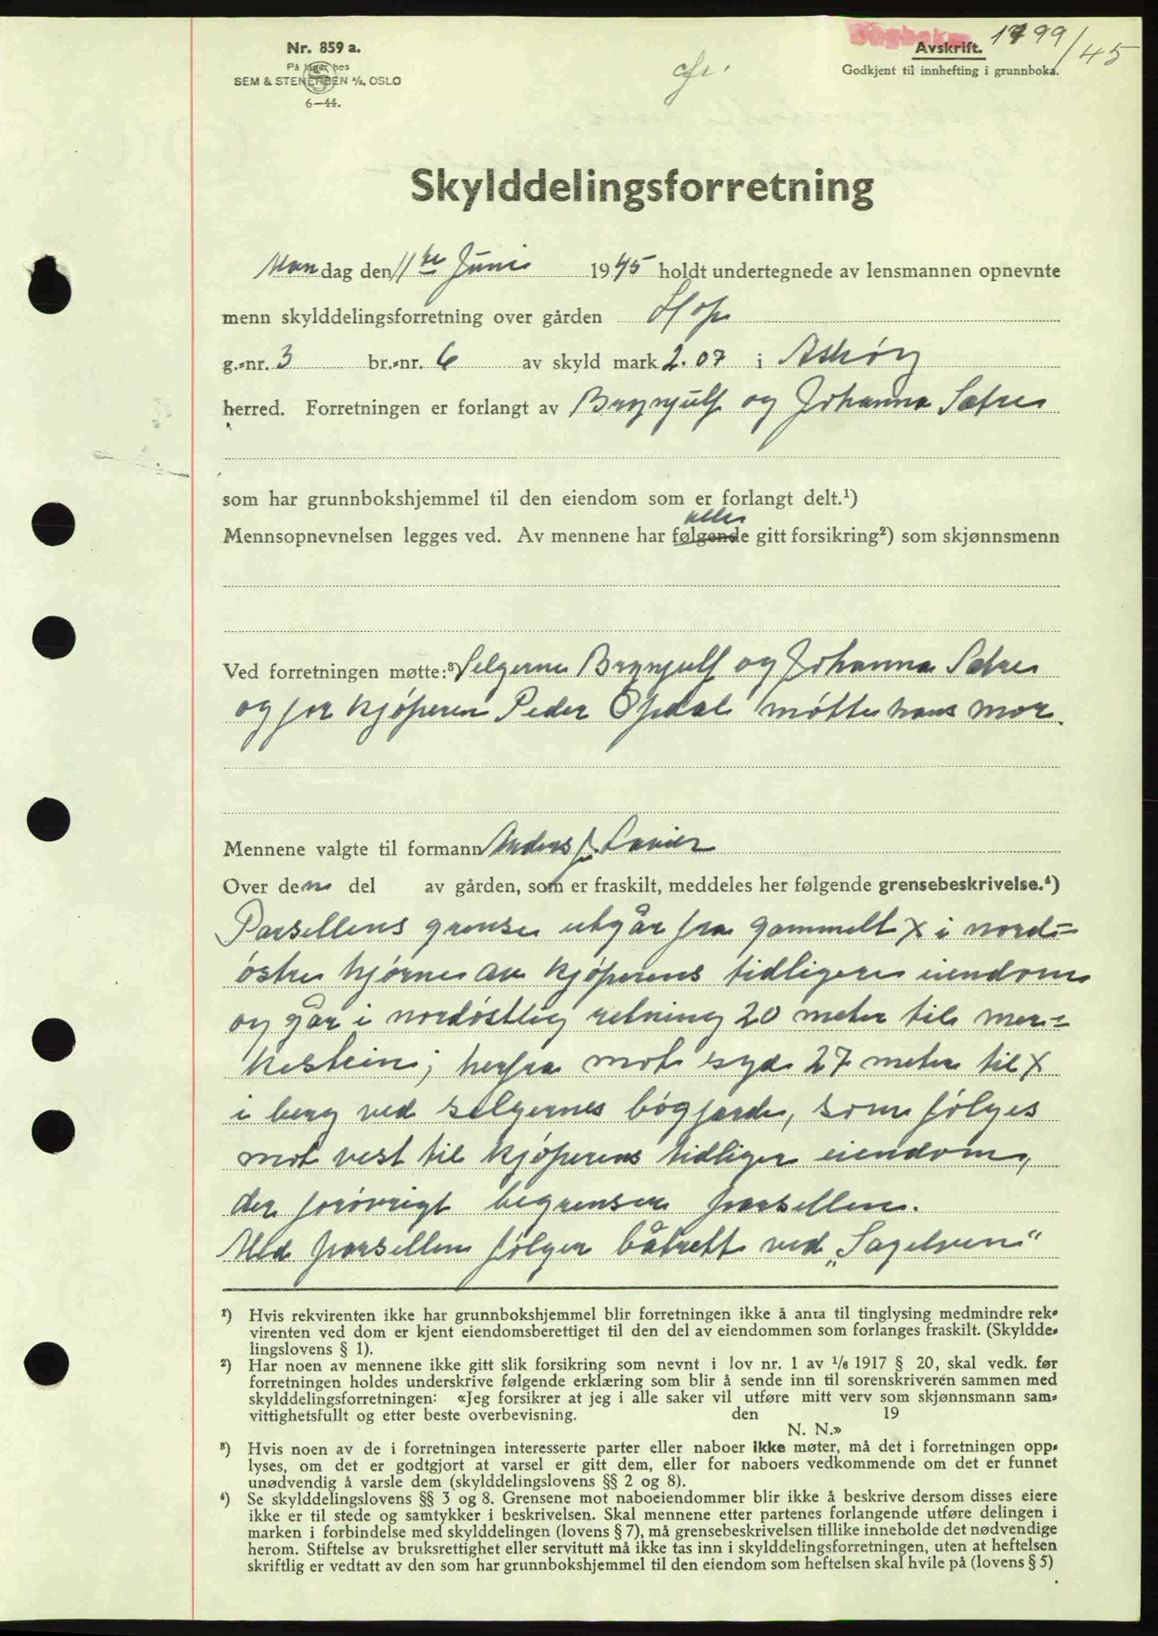 Nr. 859 a.
På lager hos
SEM & STENERSEN A/S, OSLO
6—44.
Dagboknr. 1799/45
Avskrift.
Godkjent til innhefting i grunnboka.
Skylddelingsforretning
Mandag den 11te Juni 1945 holdt undertegnede av lensmannen opnevnte
menn skylddelingsforretning over gården Hop
g.-nr. 3 br.-nr. 6 av skyld mark 2.07 i Askøy
herred. Forretningen er forlangt av Brynjulf og Johanna Sætre
som har grunnbokshjemmel til den eiendom som er forlangt delt.¹)
Mennsopnevnelsen legges ved. Av mennene har følgende alle gitt forsikring²) som skjønnsmenn
Ved forretningen møtte:³) Selgerne Brynjulf og Johanna Sætre
og for kjøperen Peder Opdal møtte hans mor.
Mennene valgte til formann Anders J.
Over den del av gården, som er fraskilt, meddeles her følgende grensebeskrivelse.⁴)
Parsellens grense utgår fra gammelt X i nord=
østre hjørne av kjøperens tidligere eiendom
og går i nordøstlig retning 20 meter til mer=
kestein; herfra mot syd 27 meter til X
i berg ved selgernes bøgjarde, som følges
mot vest til kjøperens tidliger eiendom,
der forøvrigt begrenser parsellen.
Med parsellen følger båtrett ved „Sagelven“
¹) Hvis rekvirenten ikke har grunnbokshjemmel blir forretningen ikke å anta til tinglysing medmindre rek-
virenten ved dom er kjent eiendomsberettiget til den del av eiendommen som forlanges fraskilt. (Skyldde-
lingslovens § 1).
²) Har noen av mennene ikke gitt slik forsikring som nevnt i lov nr. 1 av 1/6 1917 § 20, skal vedk. før
forretningen holdes underskrive følgende erklæring som blir å sende inn til sorenskriveren sammen med
skylddelingsforretningen: «Jeg forsikrer at jeg i alle saker vil utføre mitt verv som skjønnsmann sam-
vittighetsfullt og etter beste overbevisning. den 19
N. N.»
³) Hvis noen av de i forretningen interesserte parter eller naboer ikke møter, må det i forretningen opp-
lyses, om det er godtgjort at varsel er gitt dem, eller for naboers vedkommende om det er funnet
unødvendig å varsle dem (skylddelingslovens §§ 2 og 8).
⁴) Se skylddelingslovens §§ 3 og 8. Grensene mot naboeiendommer blir ikke å beskrive dersom disses eiere
ikke er til stede og samtykker i beskrivelsen. Skal mennene etter partenes forlangende utføre delingen i
marken i forbindelse med skylddelingen (lovens § 7), må grensebeskrivelsen tillike inneholde det nødvendige
herom. Stiftelse av bruksrettighet eller servitutt må ikke tas inn i skylddelingsforretningen, uten at heftelsen
skriftlig er vedtatt av den som har grunnbokshjemmel til den eiendom som heftelsen skal hvile på (lovens § 5)